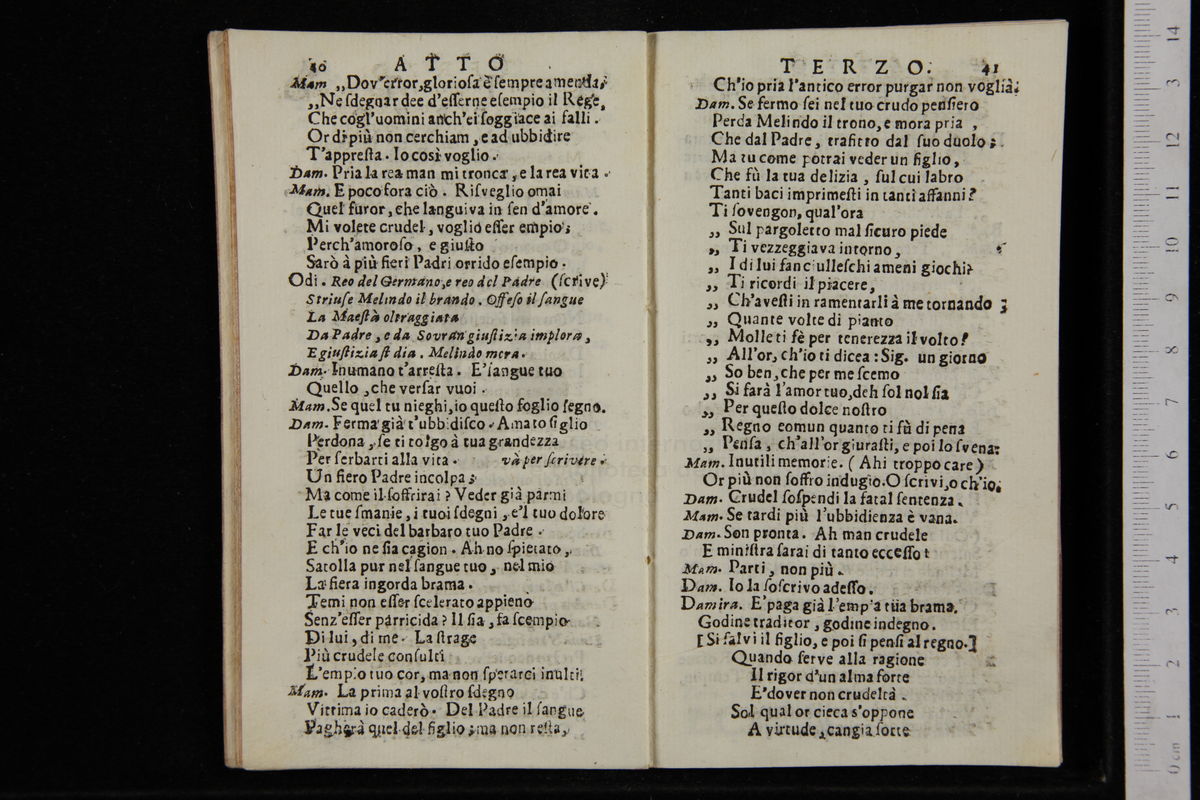 40 ATTO
Mam ,,Dov'error, gloriosa è sempre amenda,
,,Ne sdegnar dee d'esserne esempio il Rege,
Che cogl'uomini anch'ei soggiace ai falli.
Or di più non cerchiam, e ad ubbidire
T'appresta. Io così voglio.
Dam. Pria la rea man mi tronca, e la rea vita.
Mam. E poco fora ciò. Risveglio omai
Quel furor, che languiva in sen d'amore.
Mi volete crudel, voglio esser empio;
Perch'amoroso, e giusto
Sarò à più fieri Padri orrido esempio.
Odi. Reo del Germano, e reo del Padre (scrive)
Strinse Melindo il brando. Offeso il sangue
La Maestà oltraggiata
Da Padre, e da Sovran giustizia implora,
E giustizia si dia. Melindo mora.
Dam. Inumano t'arresta. E' sangue tuo
Quello, che versar vuoi.
Mam. Se quel tu nieghi, io questo foglio segno.
Dam. Ferma già t'ubbidisco. Amato figlio
Perdona, se ti tolgo à tua grandezza
Per serbarti alla vita. và per scrivere.
Un fiero Padre incolpa;
Ma come il soffrirai? Veder già parmi
Le tue smanie, i tuoi sdegni, e'l tuo dolore
Far le veci del barbaro tuo Padre.
E ch'io ne sia cagion. Ah no spietato,
Satolla pur nel sangue tuo, nel mio
La fiera ingorda brama.
Temi non esser scelerato appieno
Senz'esser parricida? Il sia, fa scempio
Di lui, di me. La strage
Più crudele consulti
L'empio tuo cor, ma non sperarci inulti.
Mam. La prima al vostro sdegno
Vittima io caderò. Del Padre il sangue
Pagherà quel del figlio; ma non resta,
TERZO. 41
Ch'io pria l'antico error purgar non voglia.
Dam. Se fermo sei nel tuo crudo pensiero
Perda Melindo il trono, e mora pria,
Che dal Padre, trafitto dal suo duolo;
Ma tu come potrai veder un figlio,
Che fù la tua delizia, sul cui labro
Tanti baci imprimesti in tanti affanni?
Ti sovengon, qual'ora
,, Sul pargoletto mal sicuro piede
,, Ti vezzeggiava intorno,
,, I di lui fanciulleschi ameni giochi?
,, Ti ricordi il piacere,
,, Ch'avesti in ramentarli à me tornando;
,, Quante volte di pianto
,, Molle ti fè per tenerezza il volto?
,, All'or, ch'io ti dicea: Sig. un giorno
,, So ben, che per me scemo
,, Si farà l'amor tuo, deh sol nol sia
,, Per questo dolce nostro
,, Regno comun quanto ti fù di pena
,, Pensa, ch'all'or giurasti, e poi lo svena.
Mam. Inutili memorie. (Ahi troppo care)
Or più non soffro indugio. O scrivi, o ch'io.
Dam. Crudel sospendi la fatal sentenza.
Mam. Se tardi più l'ubbidienza è vana.
Dam. Son pronta. Ah man crudele
E ministra sarai di tanto eccesso!
Mam. Parti, non più.
Dam. Io la soscrivo adesso.
Damira. E' paga già l'empia tua brama.
Godine traditor, godine indegno.
[Si salvi il figlio, e poi si pensi al regno.]
Quando serve alla ragione
Il rigor d'un alma forte
E' dover non crudeltà.
Sol qual or cieca s'oppone
A virtude, cangia sorte